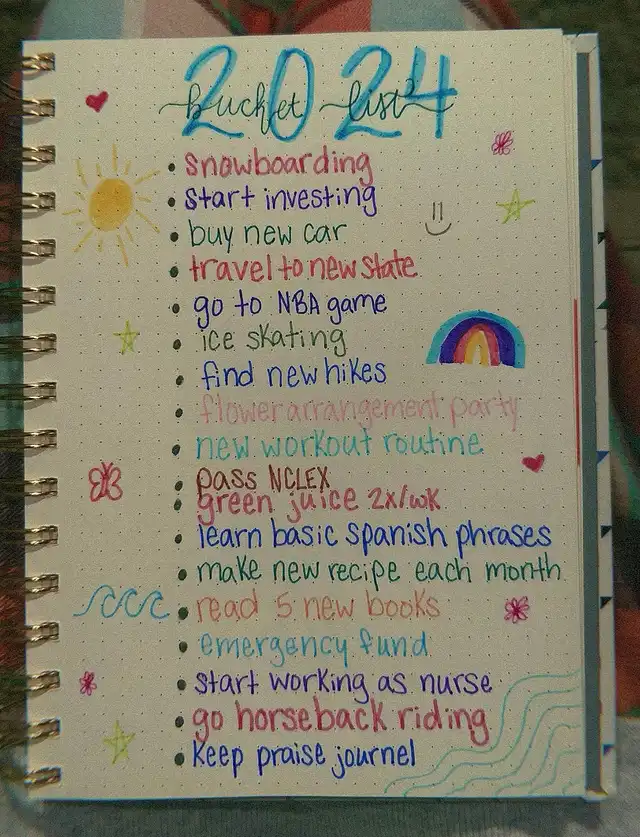 2024
bucket list
• snowboarding
• start investing
• buy new car
• travel to new state
• go to NBA game
• ice skating
• find new hikes
• flower arrangement party
• new workout routine
• pass NCLEX
• green juice 2x/wk
• learn basic spanish phrases
• make new recipe each month
• read 5 new books
• emergency fund
• start working as nurse
• go horseback riding
• keep praise journel